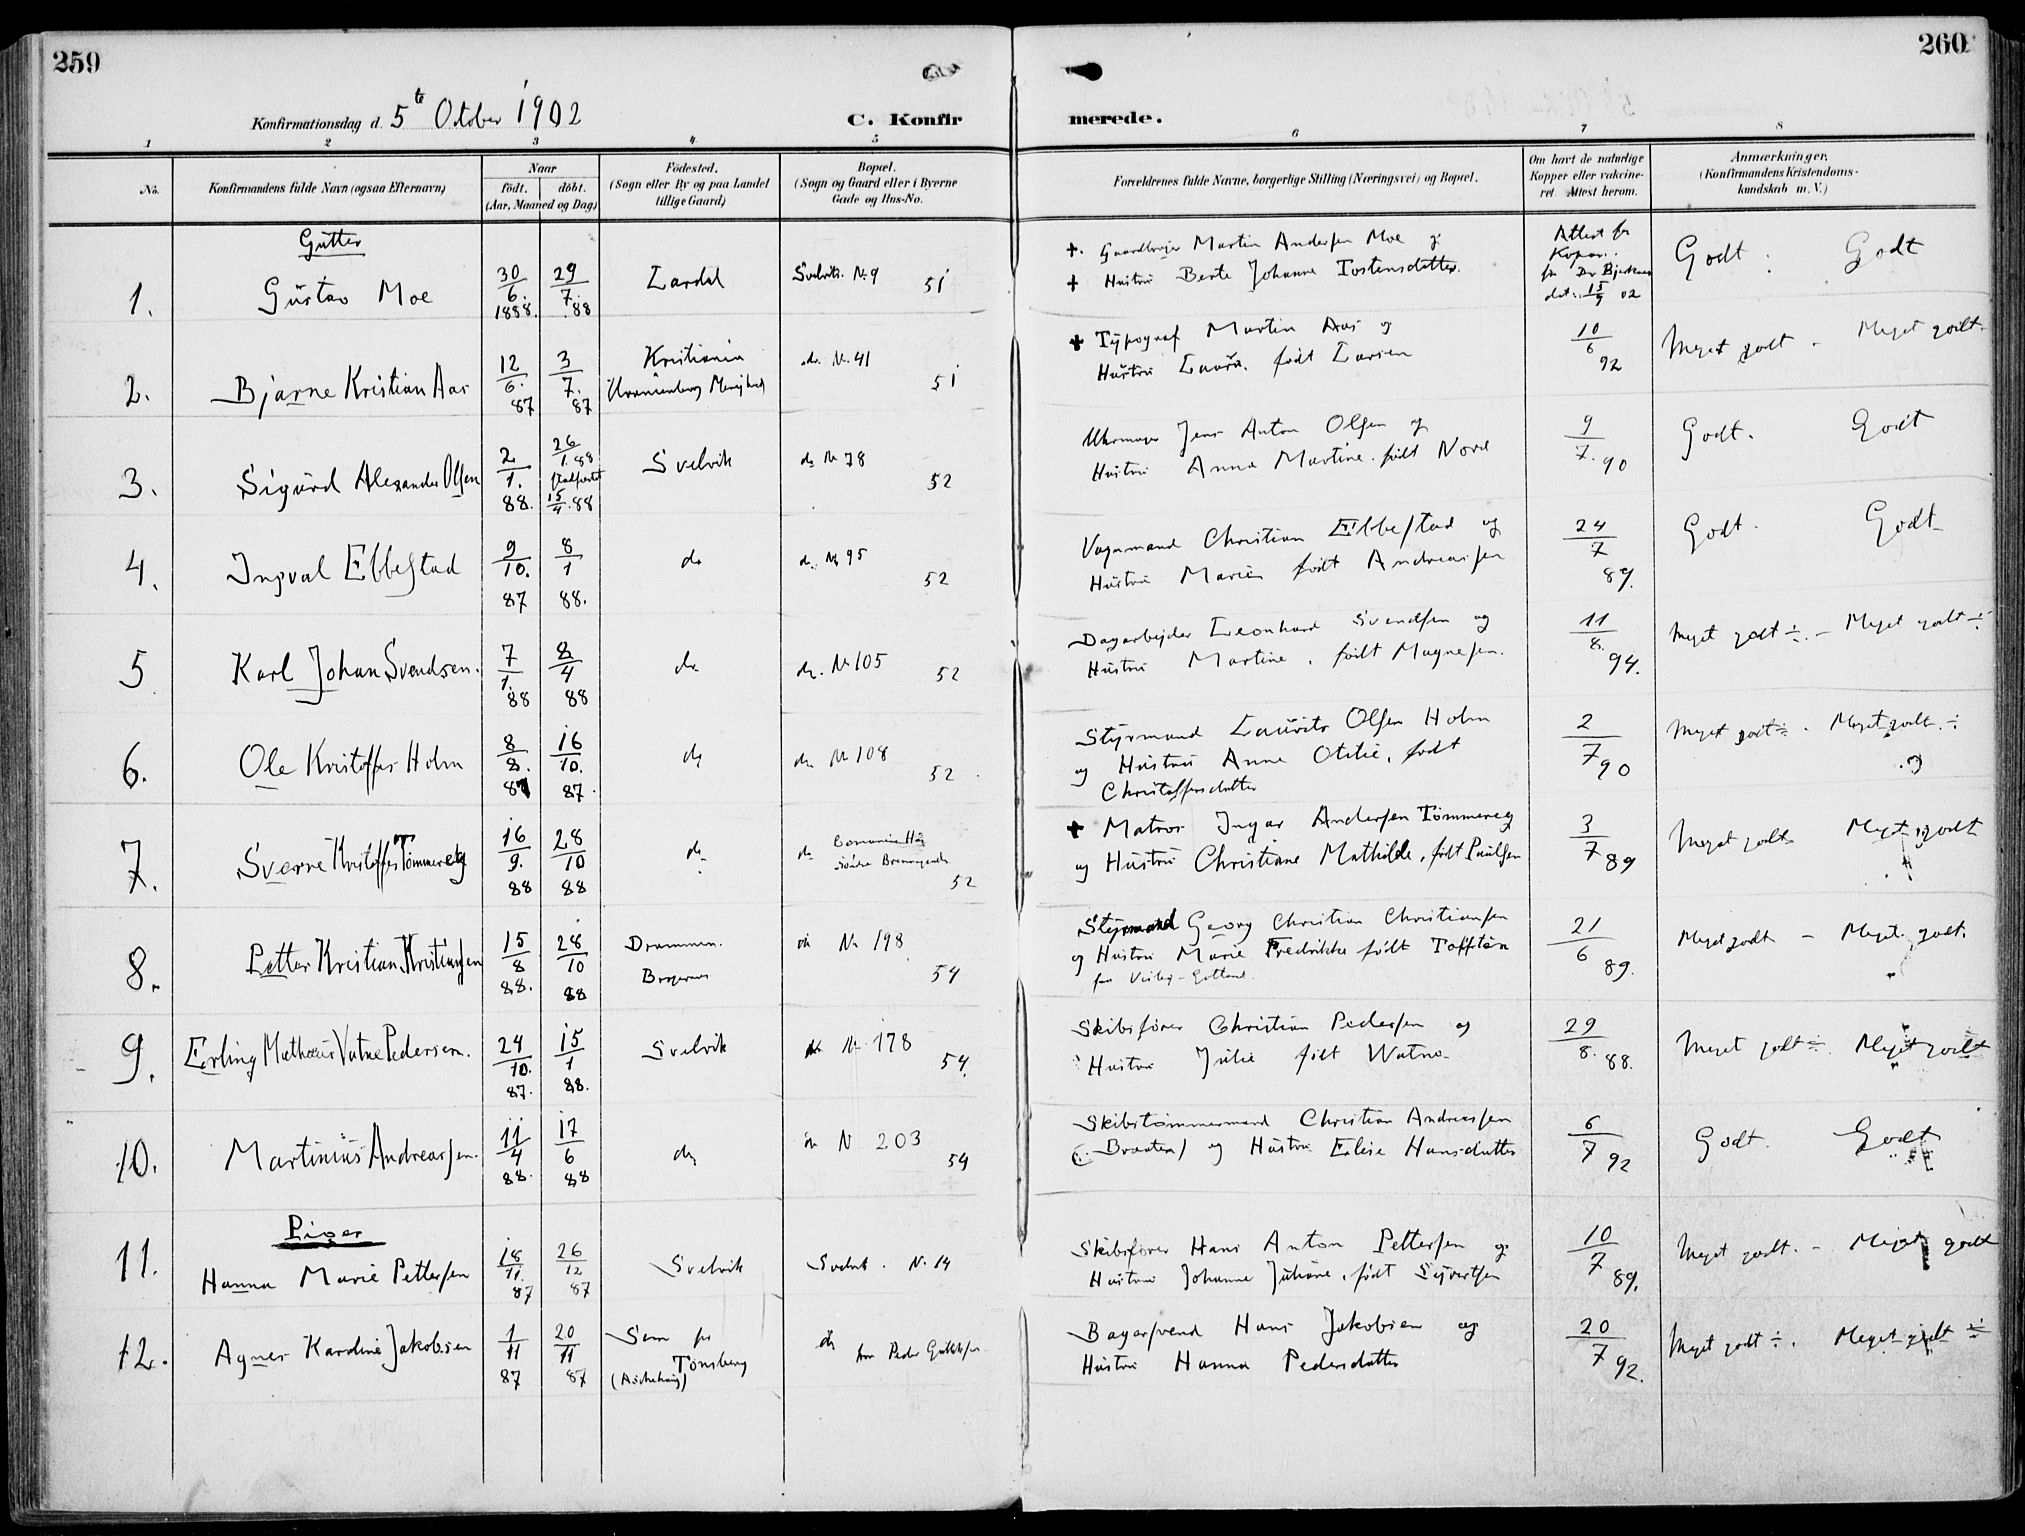 259
260
Konfirmationsdag d. 5te October 1902
C. Konfirmerede.
1 2 3 4 5 6 7 8
No.
Konfirmandens fulde Navn (ogsaa Efternavn)
Naar
födt. döbt.
(Aar, Maaned og Dag)
Födested.
(Sogn eller By og paa Landet
tillige Gaard)
Bopæl.
(Sogn og Gaard eller i Byerne
Gade og Hus-No.
Forældrenes fulde Navne, borgerlige Stilling (Næringsvei) og Bopæl.
Om havt de naturlige
Kopper eller vakcine-
ret Attest herom.
Anmærkninger.
(Konfirmandens Kristendoms-
kundskab m. V.)
Gutter
1. Gustav Moe 30/6. 1888. 29/7. 88 Lardal Svelvik. No 9 51
+ Gaardbruger Martin Andersen Moe og
+ Hustru Berte Johanne Tostensdatter.
Attest fr
Kopar.
fra Dr
dat. 15/9 02
Godt. Godt
2. Bjarne Kristian Aas 12/6. 87 3/7. 87 Kristiania
Uranienborg Menighed
do. No. 41 51
+ Typograf Martin Aas og
Hustru Laura. født Larsen
10/6 92 Meget godt - Meget godt.
3. Sigurd Alexander Olsen 2/1. 88. 26/1. 88
15/4. 88 Svelvik do No 78 52
Uhrmager Jens Anton Olsen og
Hustru Anna Martine. født Nord
9/7. 90 Godt. Godt
4. Ingval Ebbestad 9/10. 87 8/1 88. do do. No 95 52
Vognmand Christian Ebbestad og
Hustru Marie født Andreassen
24/7 89. Godt. Godt
5 Karl Johan Svendsen. 7/1. 88 8/4 88 do do. No 105 52
Dagarbejder Leonhard Svendsen og
Hustru Martine. født Magnesen.
11/8. 94. Meget godt ÷. - Meget godt ÷
6. Ole Kristoffer Holm 8/8. 87 16/10. 87. do do. No 108 52
Styrmand Laurits Olsen Holm
og Hustru Anne Otilie, født
Christoffersdatter
2/7 90 Meget godt ÷. Meget godt. ÷
7. Sverre Kristoffer Tømmereg 16/9. 88 28/10 88 do do
52
+ Matros Ingar Andersen Tømmereg
og Hustru Christiane Mathilde, født Paulsen
3/7 89 Meget godt Meget godt
8. Petter Kristian Kristiansen 15/8 88. 28/10 88 Drammen.
Bragernes
do No 198 54
Styrmand Georg Christian Christiansen
og Hustru Marie Fredrikke født Tofftén
21/6 89. Meget godt - Meget godt.
9. Erling Mathæus Vatne Pedersen. 24/10. 87. 15/1 88. Svelvik do No 178 54.
Skibsfører Christian Pedersen og
Hustru Julie født Watne
29/8. 88. Meget godt ÷. Meget godt
10. Martinius Andreassen. 11/4 88. 17/6 88 do do N 203 54
Skibstømmermand Christian Andreassen
(Braaten) og Hustru Elise Hansdatter
6/7 92 Godt. Godt
Piger
11. Hanna Marie Pettersen 18/11. 87 26/12 87 Svelvik Svelvik. No. 14
Skibsfører Hans Anton Pettersen og
Hustru Johanne Juliane, født Syvertsen
10/7 89. Meget godt. - Meget godt
12. Agnes Karoline Jakobsen 1/11 87 20/11 87 Sem pr
Tønsberg
do hos Peder
Bagersvend Hans Jakobsen og
Hustru Hanna Pedersdatter
20/7 92. Meget godt ÷. Meget godt ÷